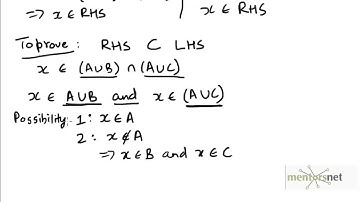 ⇒ x ∈ RHS
x ∈ RHS
To prove : RHS ⊂ LHS
x ∈ (A∪B) ∩ (A∪C)
x ∈ A∪B and x ∈ (A∪C)
Possibility:- 1: x∈A
2: x∉A
⇒ x∈B and x∈C
mentorsnet